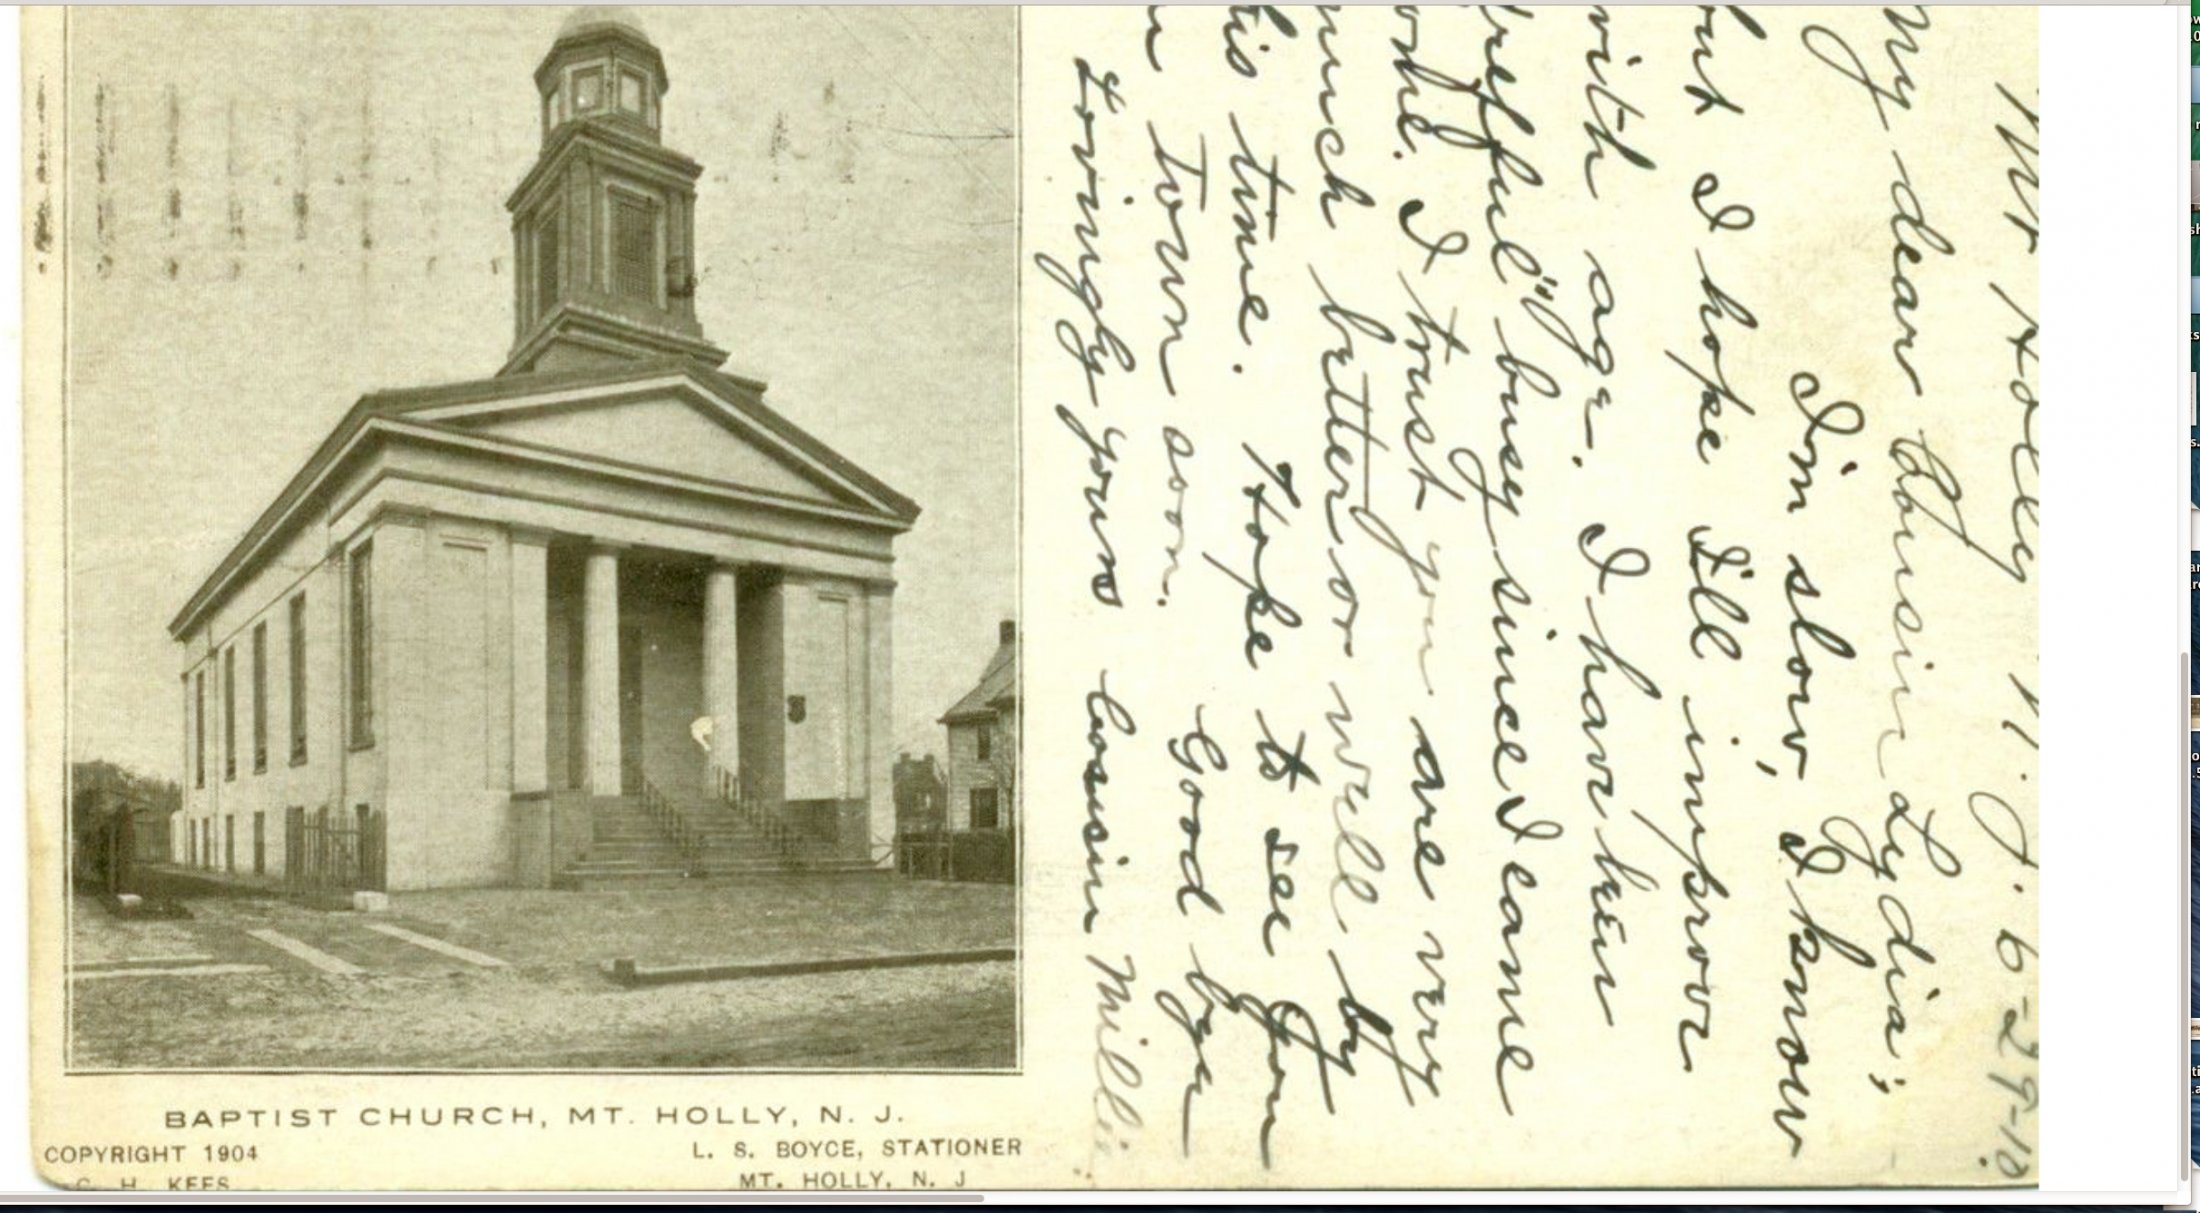 BAPTIST CHURCH, MT. HOLLY, N. J.
COPYRIGHT 1904
C. H. KEES
L. S. BOYCE, STATIONER
MT. HOLLY, N. J
Mt Holly N. J. 6-29-10.
My dear Cousin Lydia;
I'm slow, I know
but I hope I'll improve
with age. I have been
busy since I came
home. I trust you are very
much better or will by
this time. Hope to see you
town soon. Good bye
Lovingly yours Cousin Millie